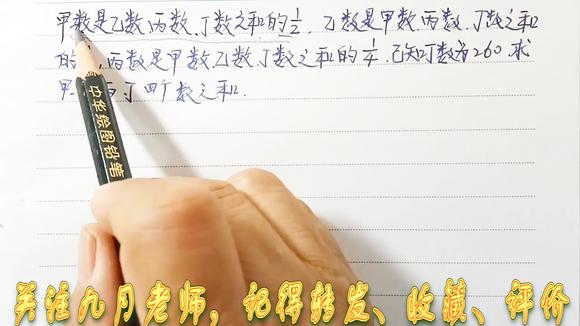 甲数是乙数、丙数、丁数之和的1/2,乙数是甲数、丙数、丁数之和
的 ,丙数是甲数、乙数、丁数之和的1/4,已知丁数为260,求
甲 丙丁四个数之和.
中华绘图铅笔
关注九月老师,记得转发、收藏、评价